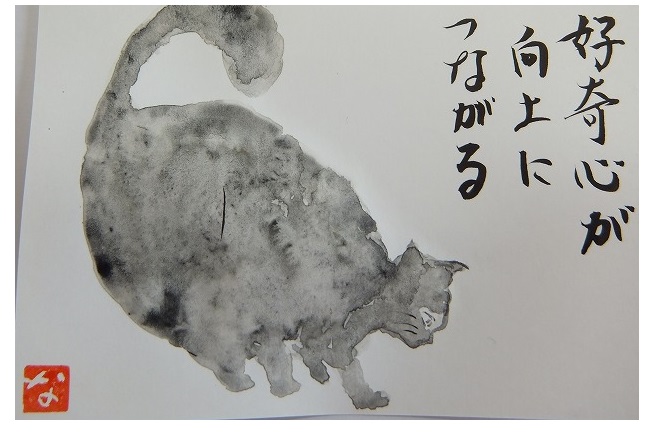 好奇心が
向上に
つながる
な